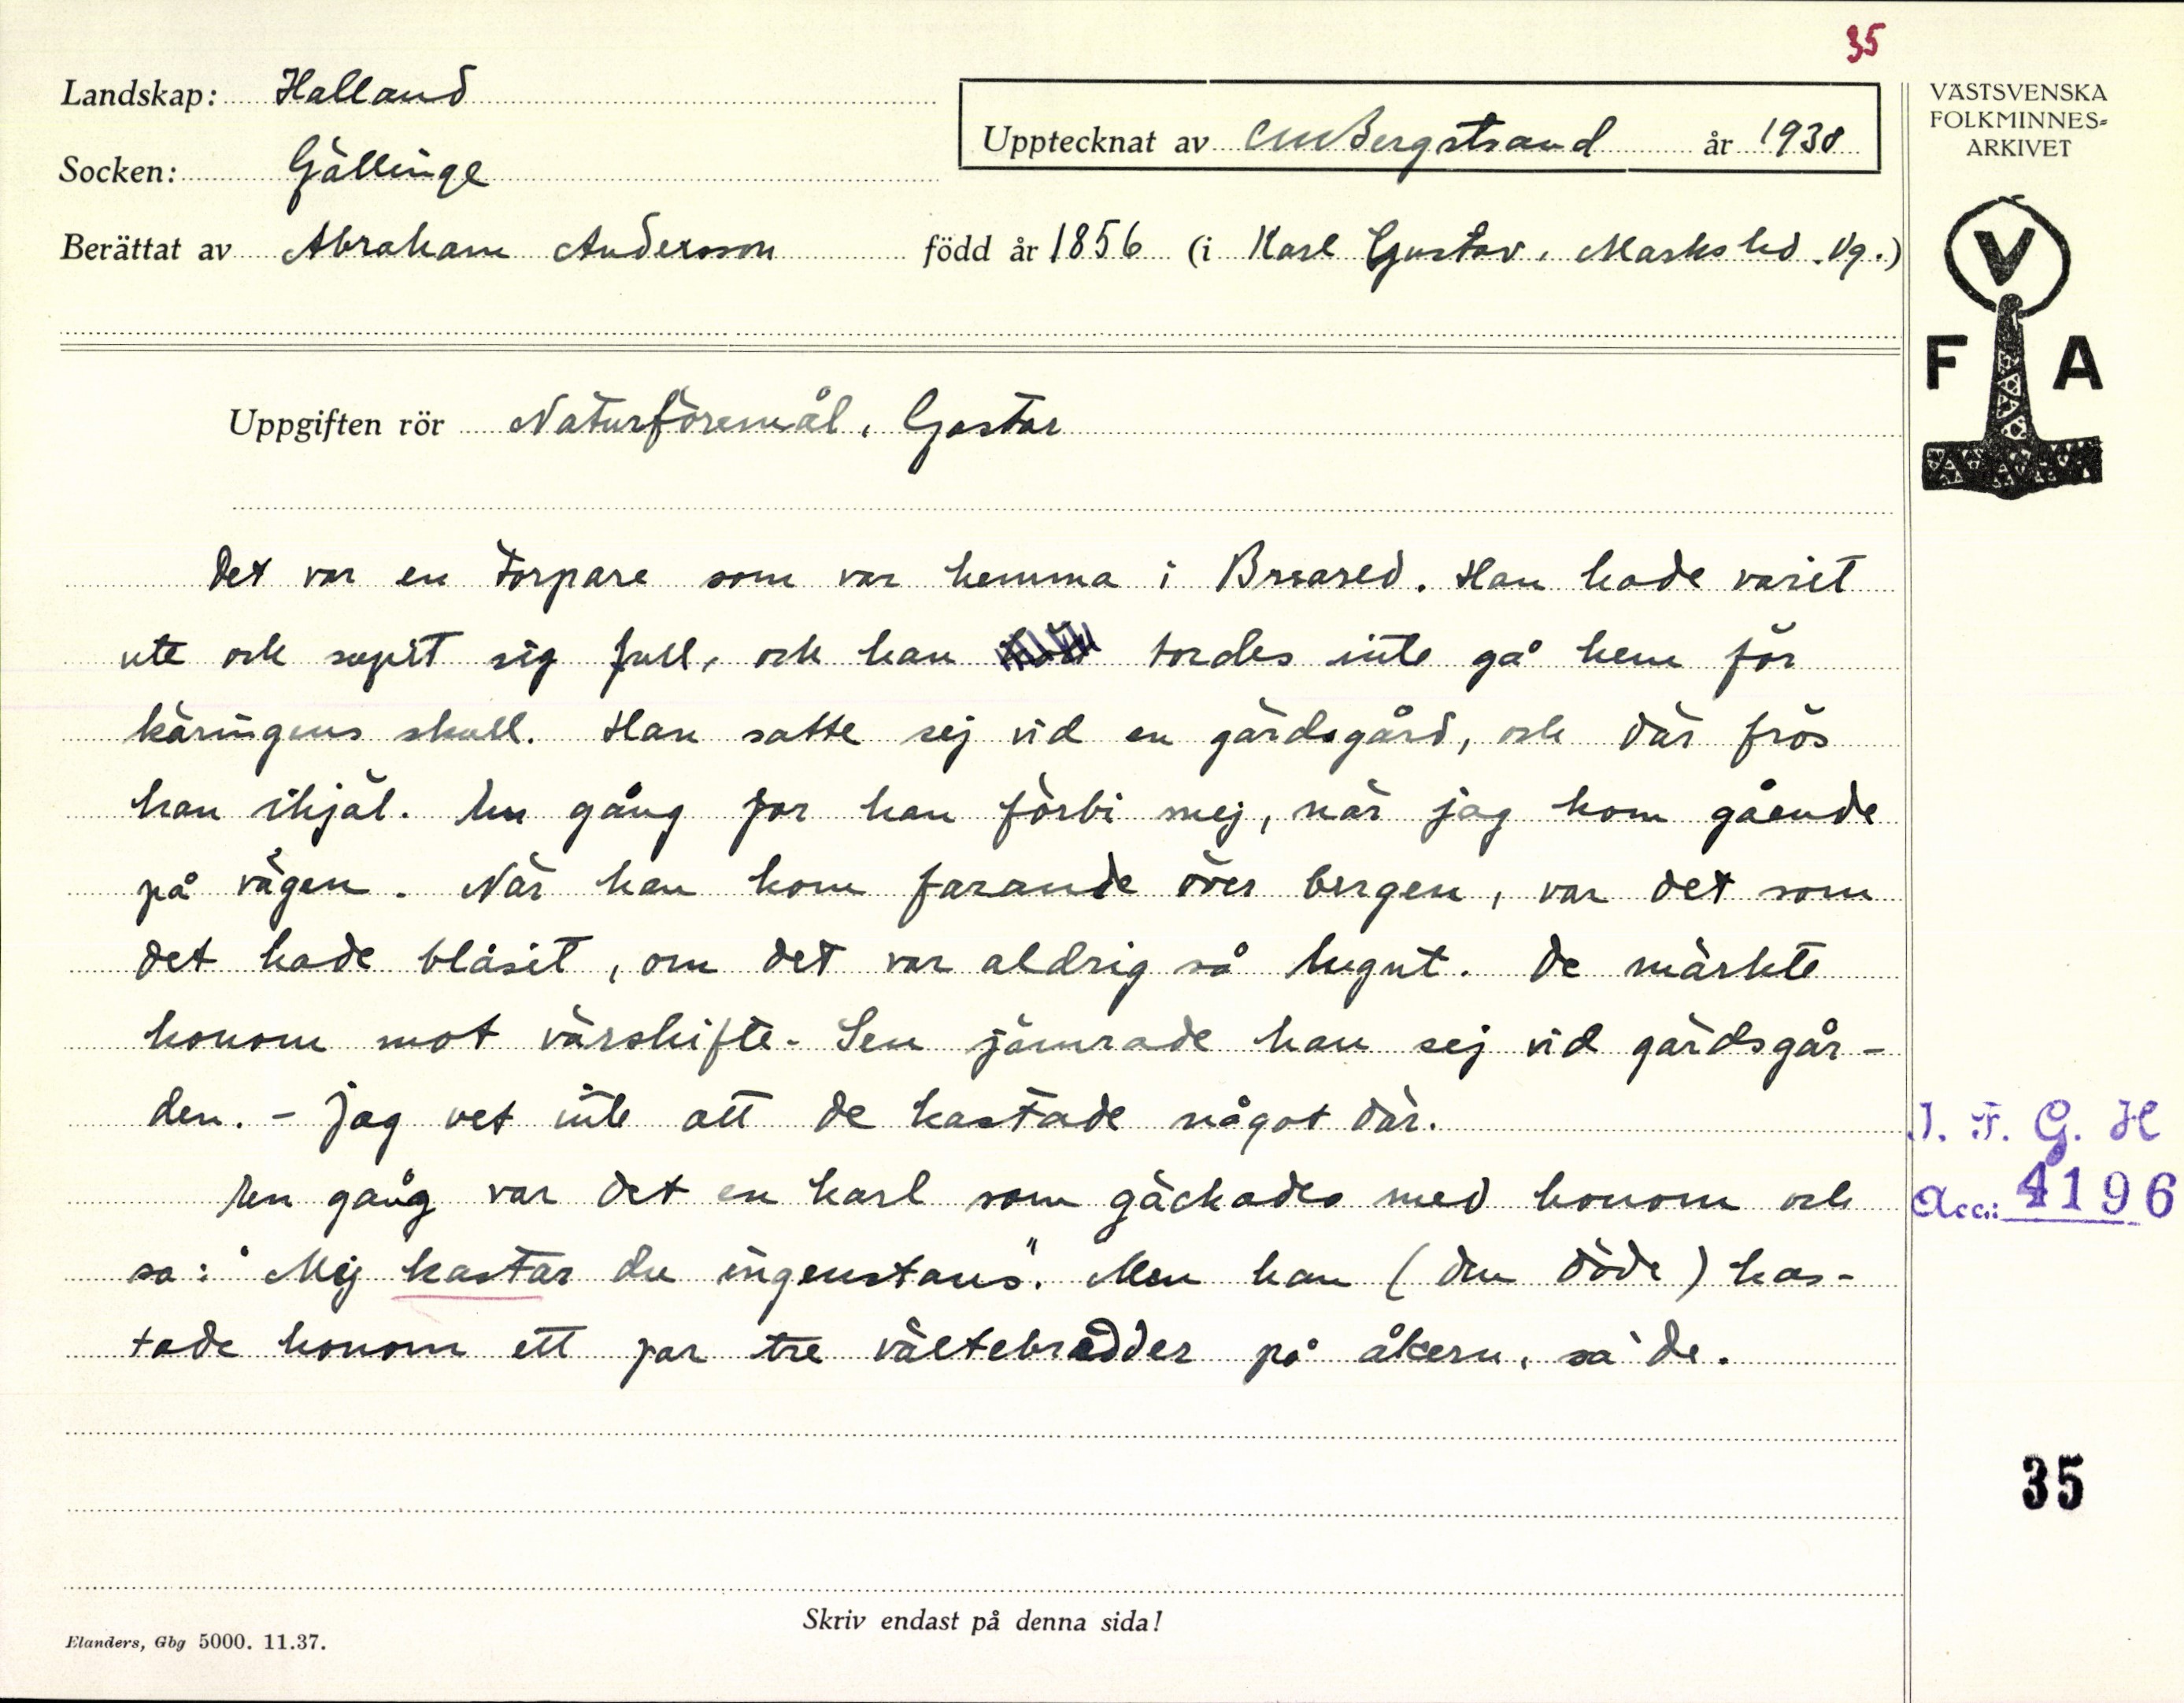 35
Landskap: Halland
Upptecknat av CMBergstrand år 1938
Socken: Gällinge
Berättat av Abraham Andersson född år 1856 (i Karl Gustav, Marks hd. Vg.)
VÄSTSVENSKA
FOLKMINNES=
ARKIVET
V
F A
Uppgiften rör Naturföremål, Gastar
Det var en torpare som var hemma i Breared. Han hade varit
ute och supit sig full, och han tordes inte gå hem för
käringens skull. Han satte sej vid en gärdsgård, och där frös
han ihjäl. En gång for han förbi mej, när jag kom gående
på vägen. När han kom farande över bergen, var det som
det hade blåsit, om det var aldrig så lugnt. De märkte
honom mot värskifte. Sen jämrade han sej vid gärdsgår-
den. - Jag vet inte att de kastade något där.
En gång var det en karl som gäckades med honom och
sa: "Mej kastar du ingenstans". Men han (den döde) kas-
tade honom ett par tre vältebredder på åkern, sa de.
I. F. G. H
Acc.: 4196
35
Skriv endast på denna sida!
Elanders, Gbg 5000. 11.37.